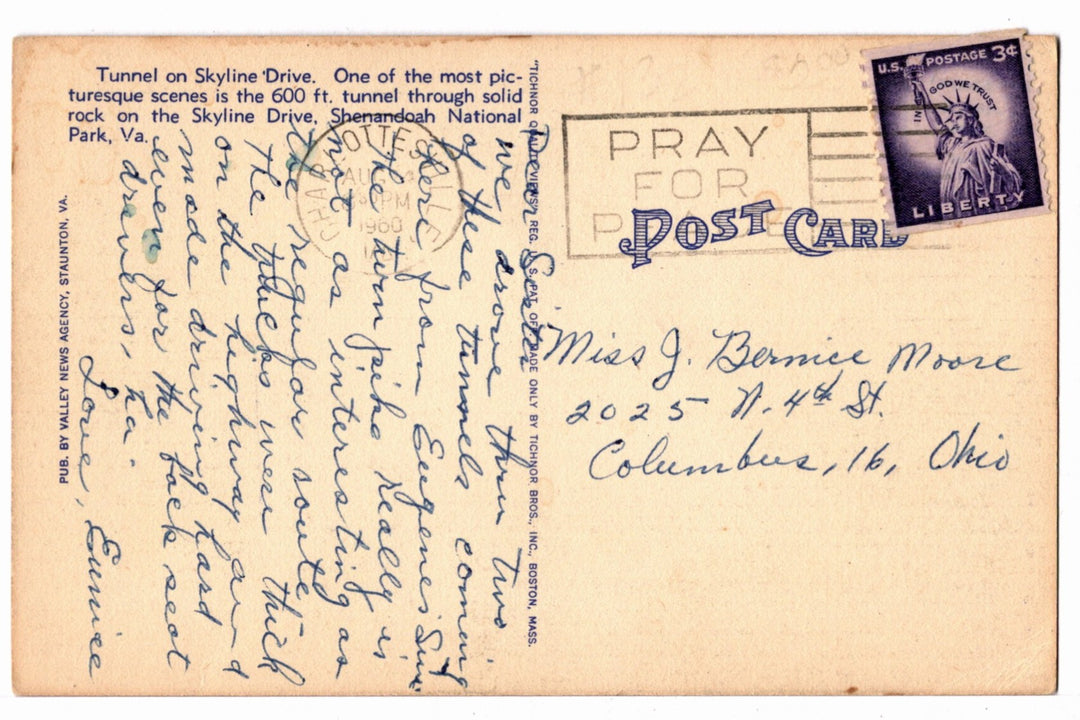 Tunnel on Skyline Drive. One of the most pic-
turesque scenes is the 600 ft. tunnel through solid
rock on the Skyline Drive, Shenandoah National
Park, Va.
PUB. BY VALLEY NEWS AGENCY, STAUNTON, VA.
"TICHNOR QUALITY VIEWS" REG. U. S. PAT. OFF. MADE ONLY BY TICHNOR BROS., INC., BOSTON, MASS.
CHARLOTTESVILLE
AUG
PM
1960
PRAY
FOR
PEACE
U.S. POSTAGE 3¢
IN GOD WE TRUST
LIBERTY
POST CARD
Dear Sister
we drove thru two
of these tunnels coming
here from Eugenes Sun.
the turnpike really is
not as interesting as
the regular route
The trucks were thick
on the highway and
made driving hard
even for the back seat
drivers, ha
Love, Eunice
Miss J. Bernice Moore
2025 N. 4th St.
Columbus, 16, Ohio